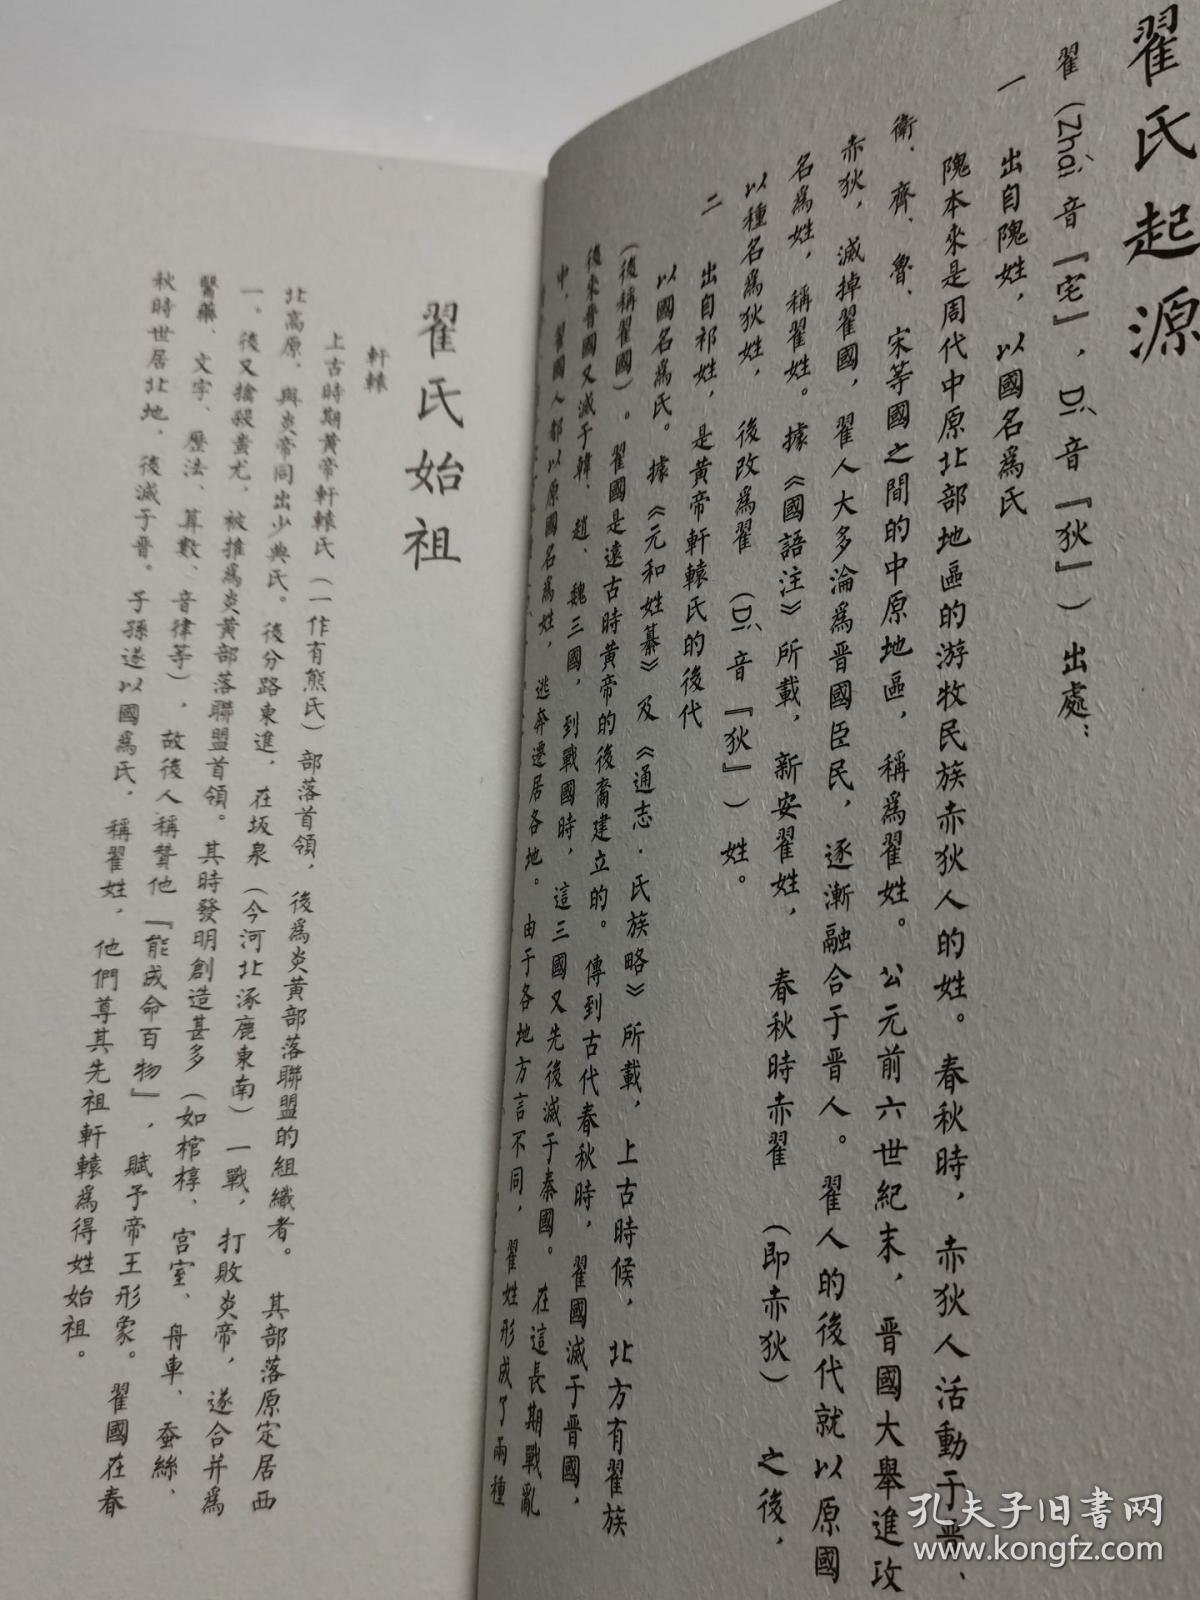 翟氏起源
翟(Zhái 音『宅』,Dí 音『狄』)出處:
一 出自隗姓,以國名爲氏
隗本來是周代中原北部地區的游牧民族赤狄人的姓。春秋時,赤狄人活動于晋、
衛、齊、魯、宋等國之間的中原地區,稱爲翟姓。公元前六世紀末,晋國大舉進攻
赤狄,滅掉翟國,翟人大多淪爲晋國臣民,逐漸融合于晋人。翟人的後代就以原國
名爲姓,稱翟姓。據《國語注》所載,新安翟姓,春秋時赤翟(即赤狄)之後,
以種名爲狄姓,後改爲翟(Dí 音『狄』)姓。
二 出自祁姓,是黄帝軒轅氏的後代
以國名爲氏。據《元和姓纂》及《通志·氏族略》所載,上古時候,北方有翟族
(後稱翟國)。翟國是遠古時黄帝的後裔建立的。傳到古代春秋時,翟國滅于晋國,
後來晋國又滅于韓、趙、魏三國,到戰國時,這三國又先後滅于秦國。在這長期戰亂
中,翟國人都以原國名爲姓,逃奔遷居各地。由于各地方言不同,翟姓形成了兩種
翟氏始祖
軒轅
上古時期黄帝軒轅氏(一作有熊氏)部落首領,後爲炎黄部落聯盟的組織者。其部落原定居西
北高原,與炎帝同出少典氏。後分路東進,在坂泉(今河北涿鹿東南)一戰,打敗炎帝,遂合并爲
一,後又擒殺蚩尤,被推爲炎黄部落聯盟首領。其時發明創造甚多(如棺椁、宫室、舟車、蚕絲、
醫藥、文字、曆法、算數、音律等),故後人稱贊他『能成命百物』,賦予帝王形象。翟國在春
秋時世居北地,後滅于晋。子孫遂以國爲氏,稱翟姓,他們尊其先祖軒轅爲得姓始祖。
孔夫子旧書网
www.kongfz.com